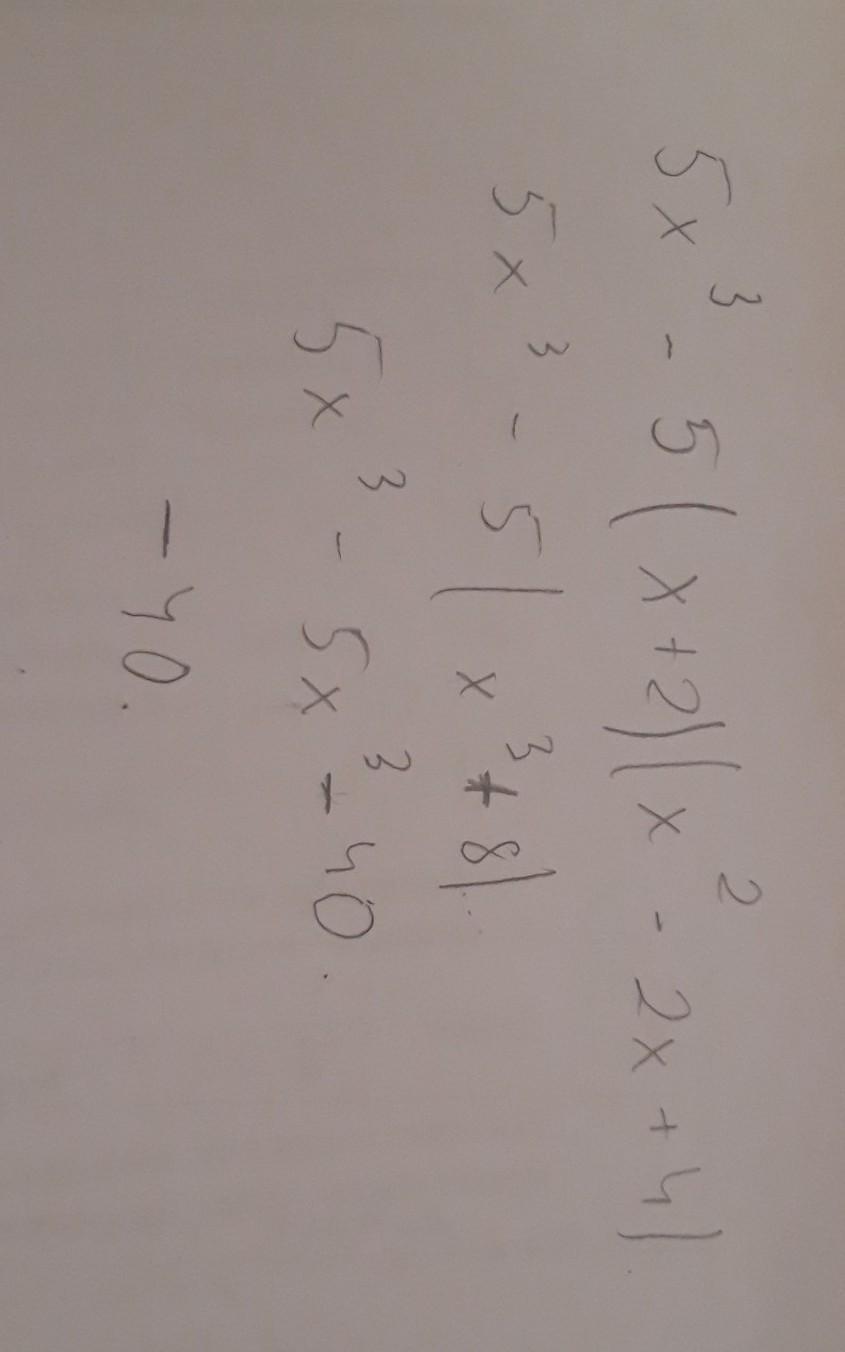 5x³ - 5(x+2)(x² - 2x + 4)
5x³ - 5(x³ + 8)
5x³ - 5x³ - 40.
- 40.